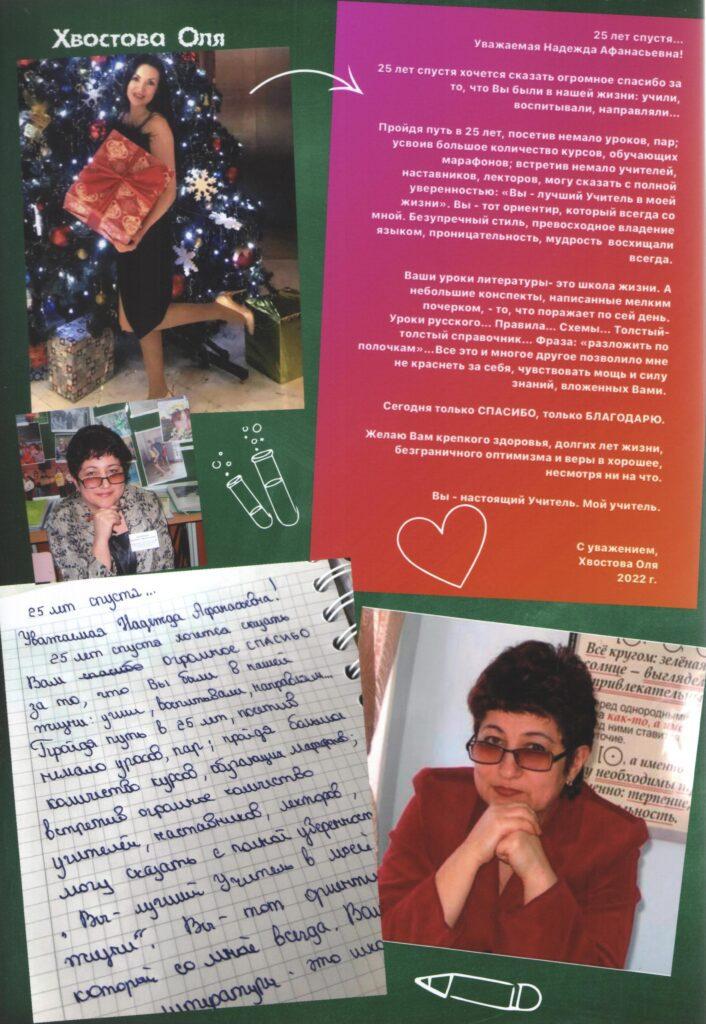 Хвостова Оля
25 лет спустя...
Уважаемая Надежда Афанасьевна!
25 лет спустя хочется сказать огромное спасибо за
то, что Вы были в нашей жизни: учили,
воспитывали, направляли...
Пройдя путь в 25 лет, посетив немало уроков, пар;
усвоив большое количество курсов, обучающих
марафонов; встретив немало учителей,
наставников, лекторов, могу сказать с полной
уверенностью: «Вы - лучший Учитель в моей
жизни». Вы - тот ориентир, который всегда со
мной. Безупречный стиль, превосходное владение
языком, проницательность, мудрость восхищали
всегда.
Ваши уроки литературы- это школа жизни. А
небольшие конспекты, написанные мелким
почерком, - то, что поражает по сей день.
Уроки русского... Правила... Схемы... Толстый-
толстый справочник... Фраза: «разложить по
полочкам»...Все это и многое другое позволило мне
не краснеть за себя, чувствовать мощь и силу
знаний, вложенных Вами.
Сегодня только СПАСИБО, только БЛАГОДАРЮ.
Желаю Вам крепкого здоровья, долгих лет жизни,
безграничного оптимизма и веры в хорошее,
несмотря ни на что.
Вы - настоящий Учитель. Мой учитель.
С уважением,
Хвостова Оля
2022 г.
25 лет спустя...
Уважаемая Надежда Афанасьевна!
25 лет спустя хочется сказать
Вам спасибо огромное СПАСИБО
за то, что Вы были в нашей
жизни: учили, воспитывали, направляли...
Пройдя путь в 25 лет, посетив
немало уроков, пар; пройдя большое
количество курсов, обучающих марафонов;
встретив огромное количество
учителей, наставников, лекторов,
могу сказать с полной уверенност
"Вы- лучший Учитель в моей
жизни". Вы- тот ориенти
который со мной всегда. Ваш
литературы - это шко
Всё кругом: зелёная
солнце – выгляде
привлекатель
еред однородными
а как-то, а име
д ними ставится
точие.
[О, а именно
у необходимы
енно: терпение,
льность.